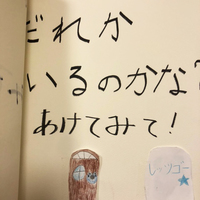 だれか
いるのかな?
あけてみて!
レッツゴー